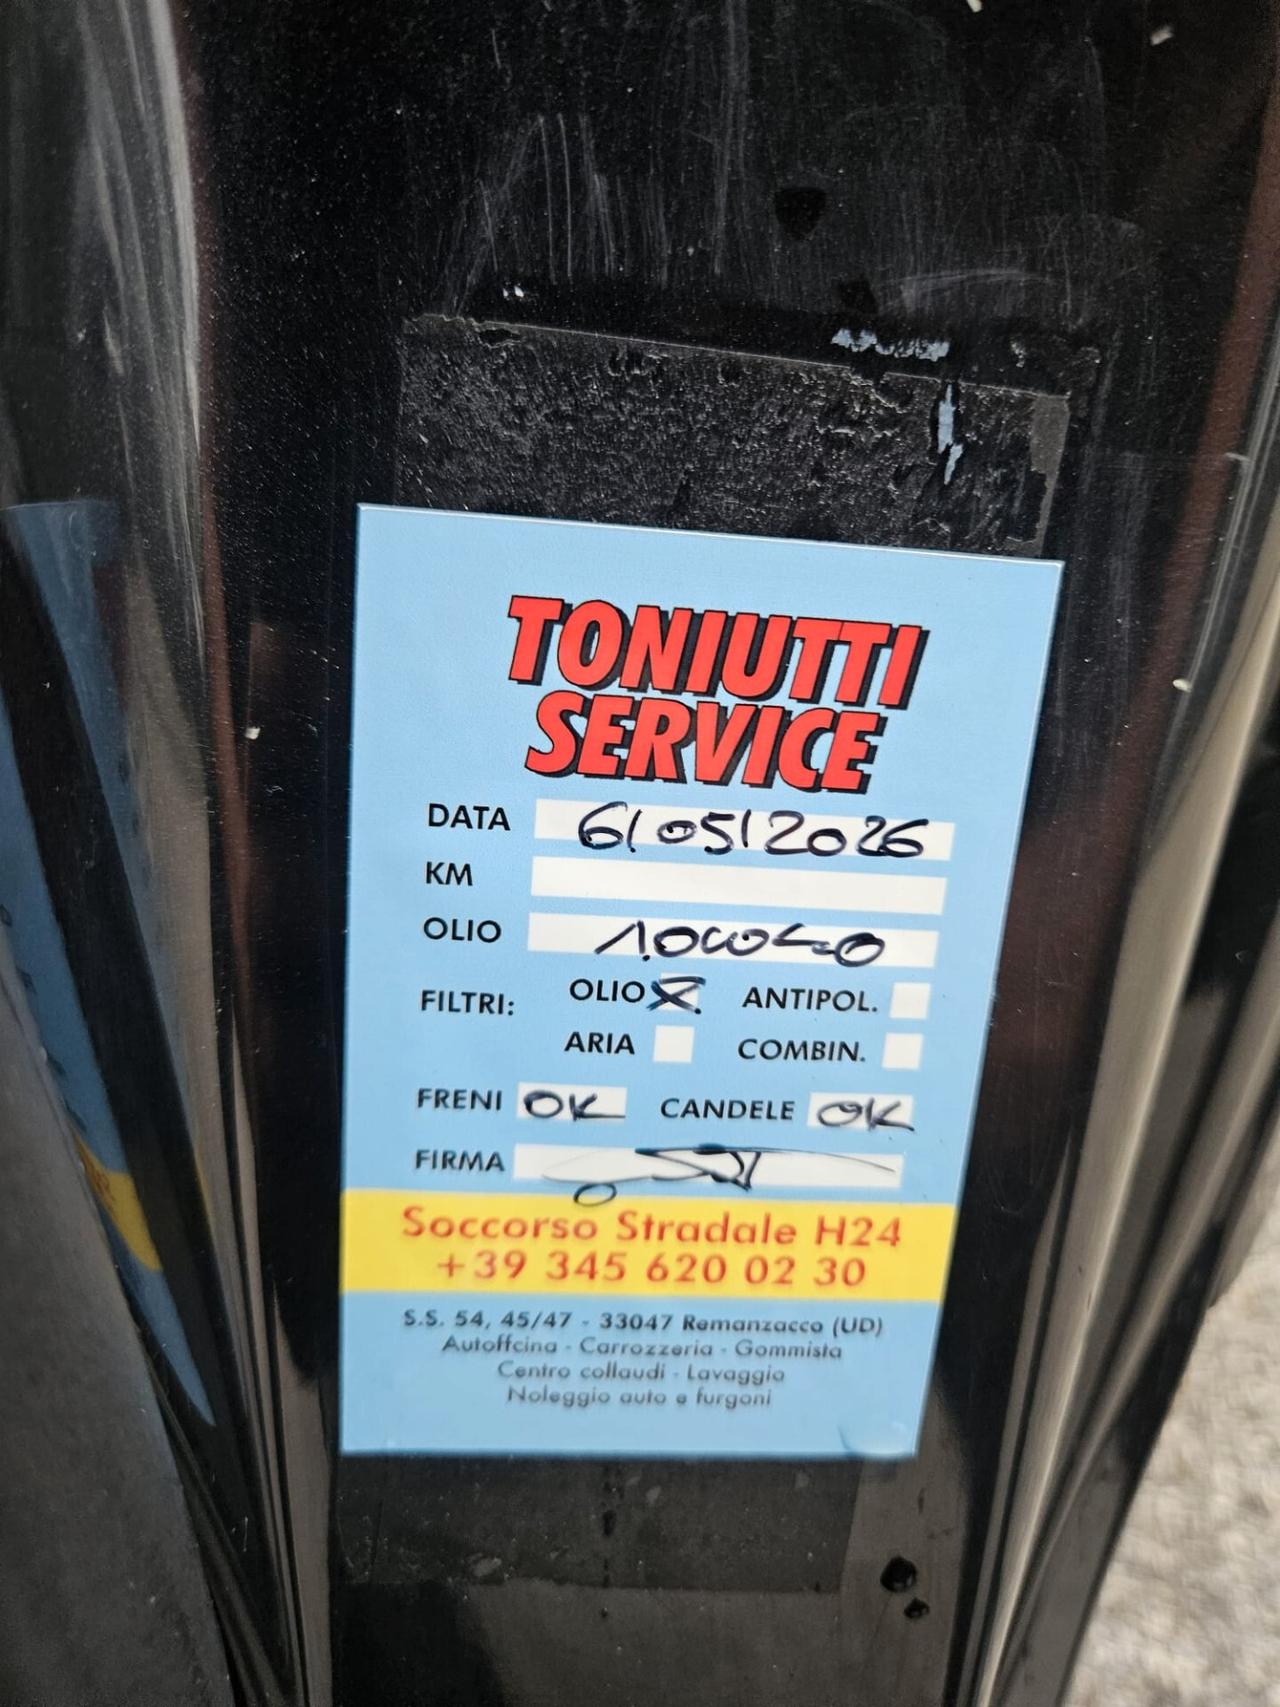 TONIUTTI
SERVICE
DATA 6/05/2026
KM
OLIO 10W40
FILTRI: OLIO X ANTIPOL.
ARIA COMBIN.
FRENI OK CANDELE OK
FIRMA
Soccorso Stradale H24
+39 345 620 02 30
S.S. 54, 45/47 - 33047 Remanzacco (UD)
Autoffcina - Carrozzeria - Gommista
Centro collaudi - Lavaggio
Noleggio auto e furgoni